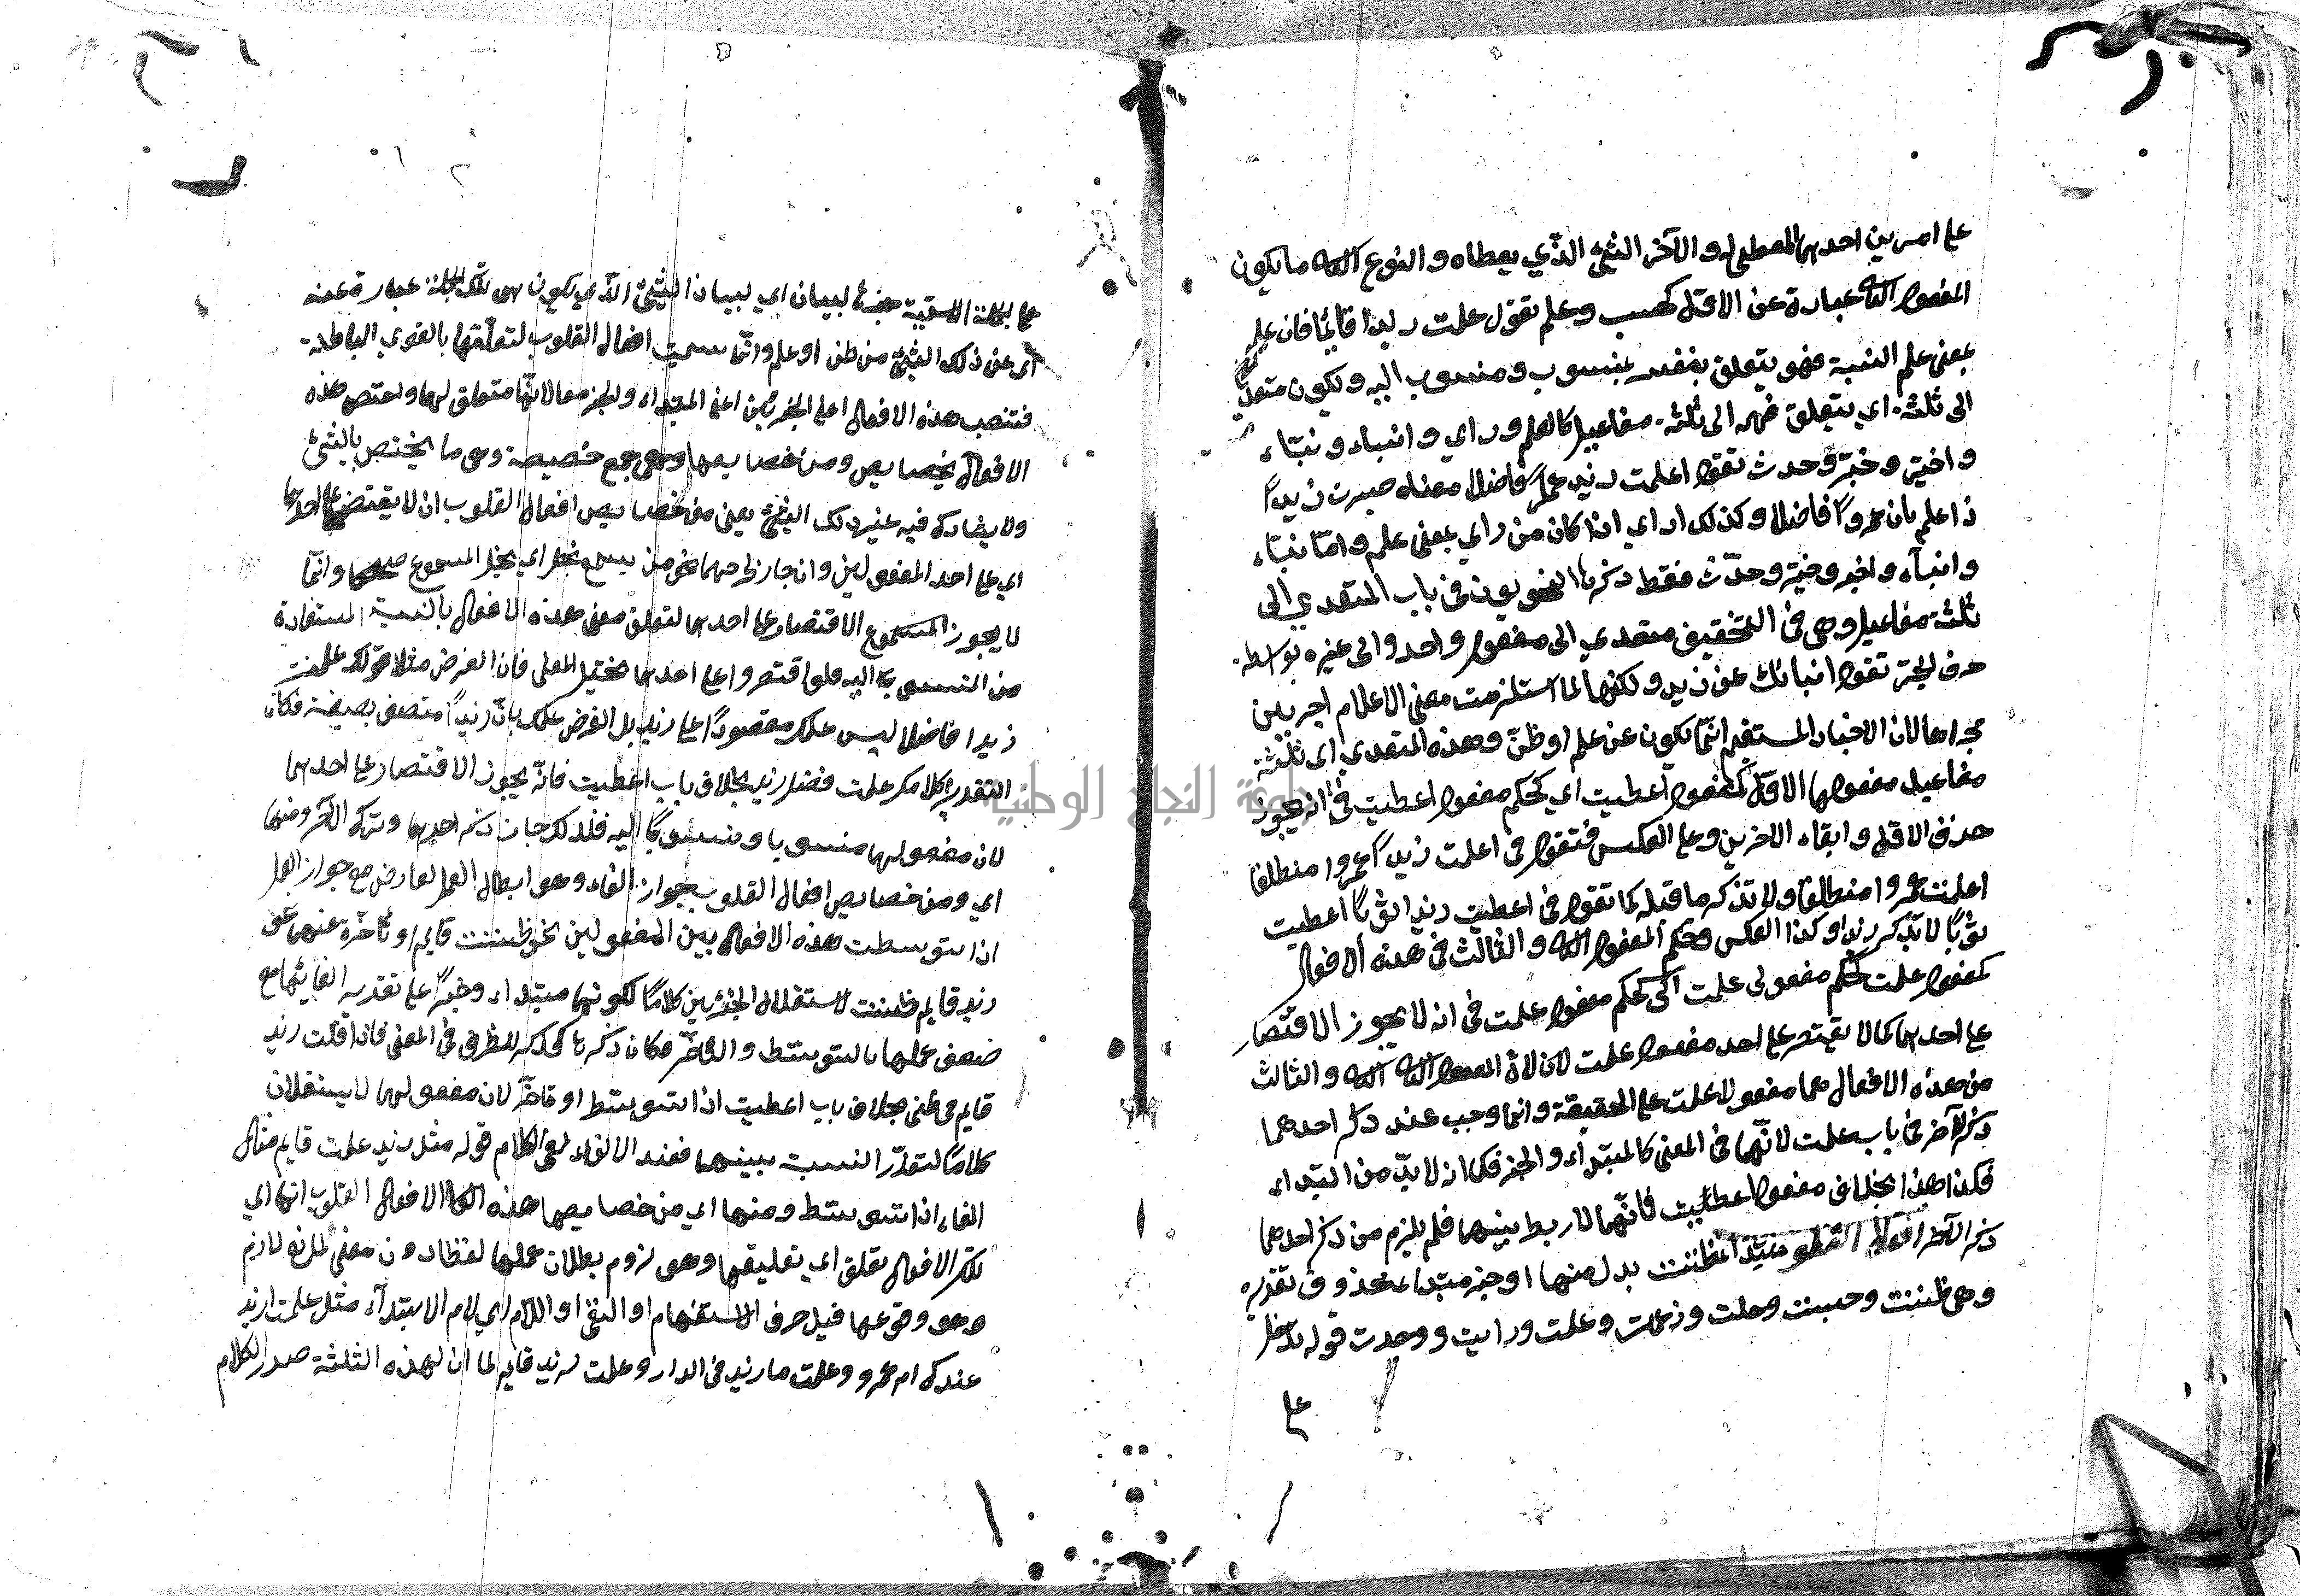 على امرين احدهما المعطى له والآخر الشئ الذّي يعطاه والنوع الثاني ما يكون
المفعول الثاني عبارة عن الاوّل كحسب وعلم تقول علمت زيدا قائما فان علم
بمعنى علم النسبة فهو يتعلق بمنسوب ومنسوب اليه ويكون متعدّيا
الى ثلثة اي يتعلق فهمه الى ثلثة مفاعيل كاعلم وراي وانباء ونبّاء
واخبر وخبّر وحدث تقول اعلمت زيد عمرًا فاضلا معناه صيرت زيدًا
ذا علم بان عمروًا فاضلا وكذلك اراي اذا كان من راي بمعنى علم وامّا نبّاء
وانبآء واخبر وخبّر وحدّث فقط ذكرها النحويون فى باب المتعدي الى
ثلثة مفاعيل وهى فى التحقيق متعدي الى مفعول واحد والى غيره بواسطة
حرف الجرّ تقول انبائك عن زيد ولكنها لما استلزمت معنى الاعلام اجريين
مجراها لان الاخبار المستقيم انّما يكون عن علم او ظنّ وهذه المتعدي اى ثلثة
مفاعيل مفعولها الاوّل كمفعول اعطيت اي كحكم مفعول اعطيت فى انه يجوز
حذف الاوّل وابقاء الاخرين وعلى العكس فتقول فى اعلمت زيدًا عمروا منطلقا
اعلمت عمروا منطلقا ولا تذكر ما قبله كما تقول فى اعطيت زيدا ثوبًا اعطيت
ثوبًا لا بذكر زيد وكذا العكس وحكم المفعول الثاني والثالث فى هذه الافعال
كمفعول علمت كحكم مفعولى علمت اى كحكم مفعول علمت فى انه لا يجوز الاقتصار
على احدهما كما لا يقتصر على احد مفعول علمت لان المفعول الثاني والثالث
من هذه الافعال هما مفعولا علمت على الحقيقة وانما وجب عند ذكر احدهما
ذكر الآخر فى باب علمت لانّهما فى المعنى كالمبتداء والخبر فكما انه لا بدّ من ابتداء
فكذا هذا بخلاف مفعول اعطيت فانّهما لا ربط بينهما فلم يلزم من ذكر احدهما
ذكر الآخر افعال القلوب مبتدا ظننت بدل منها او خبر مبتداء محذوف تقديره
وهى ظننت وحسبت وخلت وزعمت وعلمت ورايت ووجدت قوله تدخل
على
على الجملة الاسمية لبيان اي لبيان الشئ الذّي يكون تلك الجملة عبارة عنه
اى عن ذلك الشئ من ظن او علم وانّما سميت افعال القلوب لتعلّقها بالقوي الباطنة
فتنصب هذه الافعال اعلى الجزءين اعنى المبتداء والخبر معا لانّها متعلق لهما ولختص هذه
الافعال بخصايص ومن خصايصها وهى جمع خصيصة وهى ما يختص بالشئ
ولا يشاركه فيه غير ذلك الشئ يعنى من خصايص افعال القلوب ان لا يقتصر على احدهما
اي على احد المفعولين وان جاز طرحهما نحو من يسمع يخل اي يخل المسموع صحيحا وانّما
لا يجوز الاقتصار على احدهما لتعلق معنى هذه الافعال بالنسبة المستفادة
من المنسوب اليه فلو اقتصروا على احدهما لاختل المعلى فان الغرض مثلا قولك علمت
زيدا فاضلا ليس علمك مقصودًا على زيد بل الغرض علمك بانّ زيدًا متصف بصيغة فكان
التقدير كلامك علمت فضل زيد بخلاف باب اعطيت فانّه يجوز الاقتصار على احدهما
لان مفعولهما منسوبا ومنسوبًا اليه فلذلك جاز ذكر احدهما وترك الآخر ومنها
اي ومن خصايص افعال القلوب جواز الغاء وهو ابطال العمل لعارض مع جواز العمل
اذا توسطت هذه الافعال بين المفعولين نحو ظننت قايم او تأخّرة عنهما نحو
زيد قايم ظننت لاستقلال الجزءين كلامًا لكونهما مبتداء وخبرًا على تقدير الغايهما مع
ضعف عملها بالتوسّط والتّاخّر فكان ذكرها كذكر الظرف فى المعنى فاذا قلت زيد
قايم فى ظنى بخلاف باب اعطيت اذا توسّط او تاخّر لان مفعولهما لا يستقلان
كلامًا لتعذّر النسبة بينهما فعند الالغاء لغى الكلام قوله مثل زيد علمت قايم مثال
الغاء اذا توسّط ومنها اي من خصايصها هذه الافعال القلوب انها اي
تلك الافعال تعلق اي تعليقها وهو لزوم بطلان عملها لفظا دون معنى لمانع لازم
وهو وقوعها قبل حرف الاستفهام او النفى او اللاّم اي لام الابتدآء مثل علمت ازيد
عندك ام عمرو وعلمت ما زيد فى الدار وعلمت لزيد قايم لما ان لهذه الثلثة صدر الكلام
جامعة النجاح الوطنية